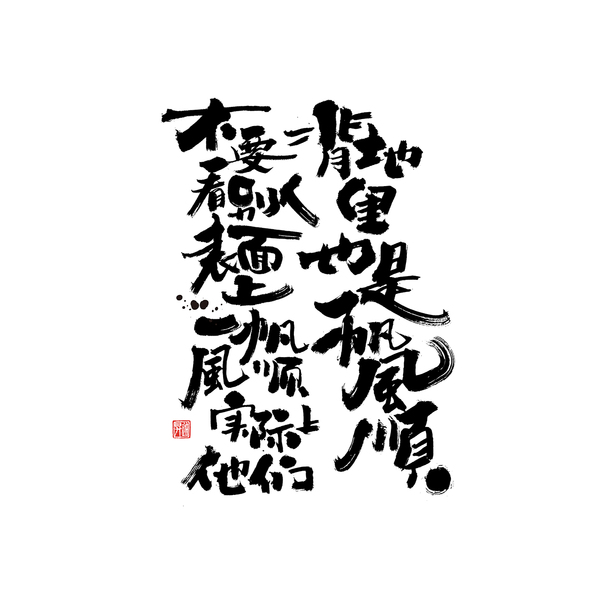 不要看别人表面上一帆風顺实际上他们
背地里也是一帆風順